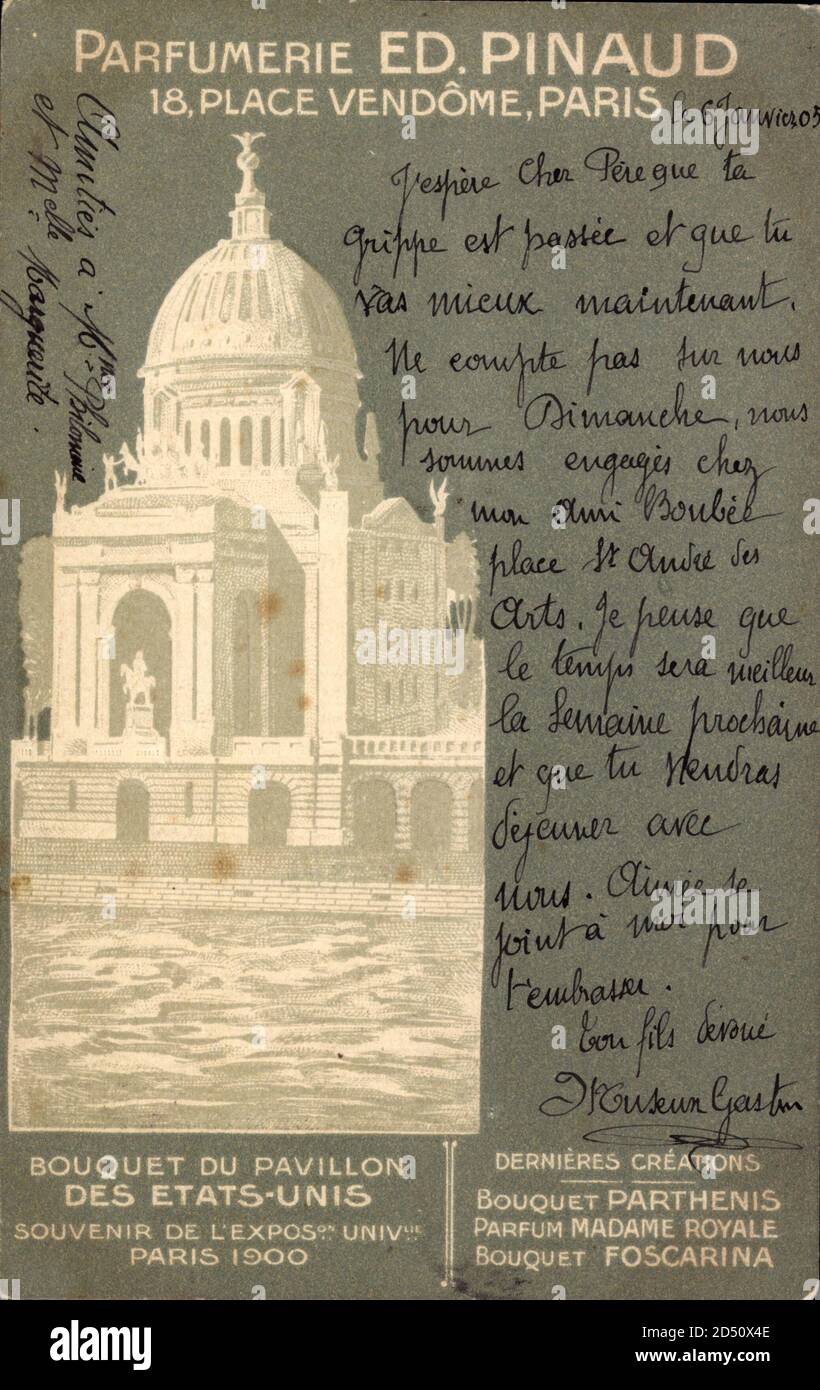 PARFUMERIE ED. PINAUD
18, PLACE VENDÔME, PARIS
le 6 Janvier 05
J'espère Cher Père que ta
grippe est passée et que tu
vas mieux maintenant.
Ne compte pas sur nous
pour Dimanche, nous
sommes engagés chez
mon ami Boubée
place St André des
Arts. Je pense que
le temps sera meilleur
la semaine prochaine
et que tu viendras
déjeuner avec
nous. Aimée se
joint à moi pour
t'embrasser.
Ton fils dévoué
Gaston
Amitiés à Mme Philomine
et Melle Marguerite.
BOUQUET DU PAVILLON
DES ETATS-UNIS
SOUVENIR DE L'EXPOSon UNIVlle
PARIS 1900
DERNIÈRES CRÉATIONS
BOUQUET PARTHENIS
PARFUM MADAME ROYALE
BOUQUET FOSCARINA
alamy
alamy
Image ID: 2D50X4E
www.alamy.com